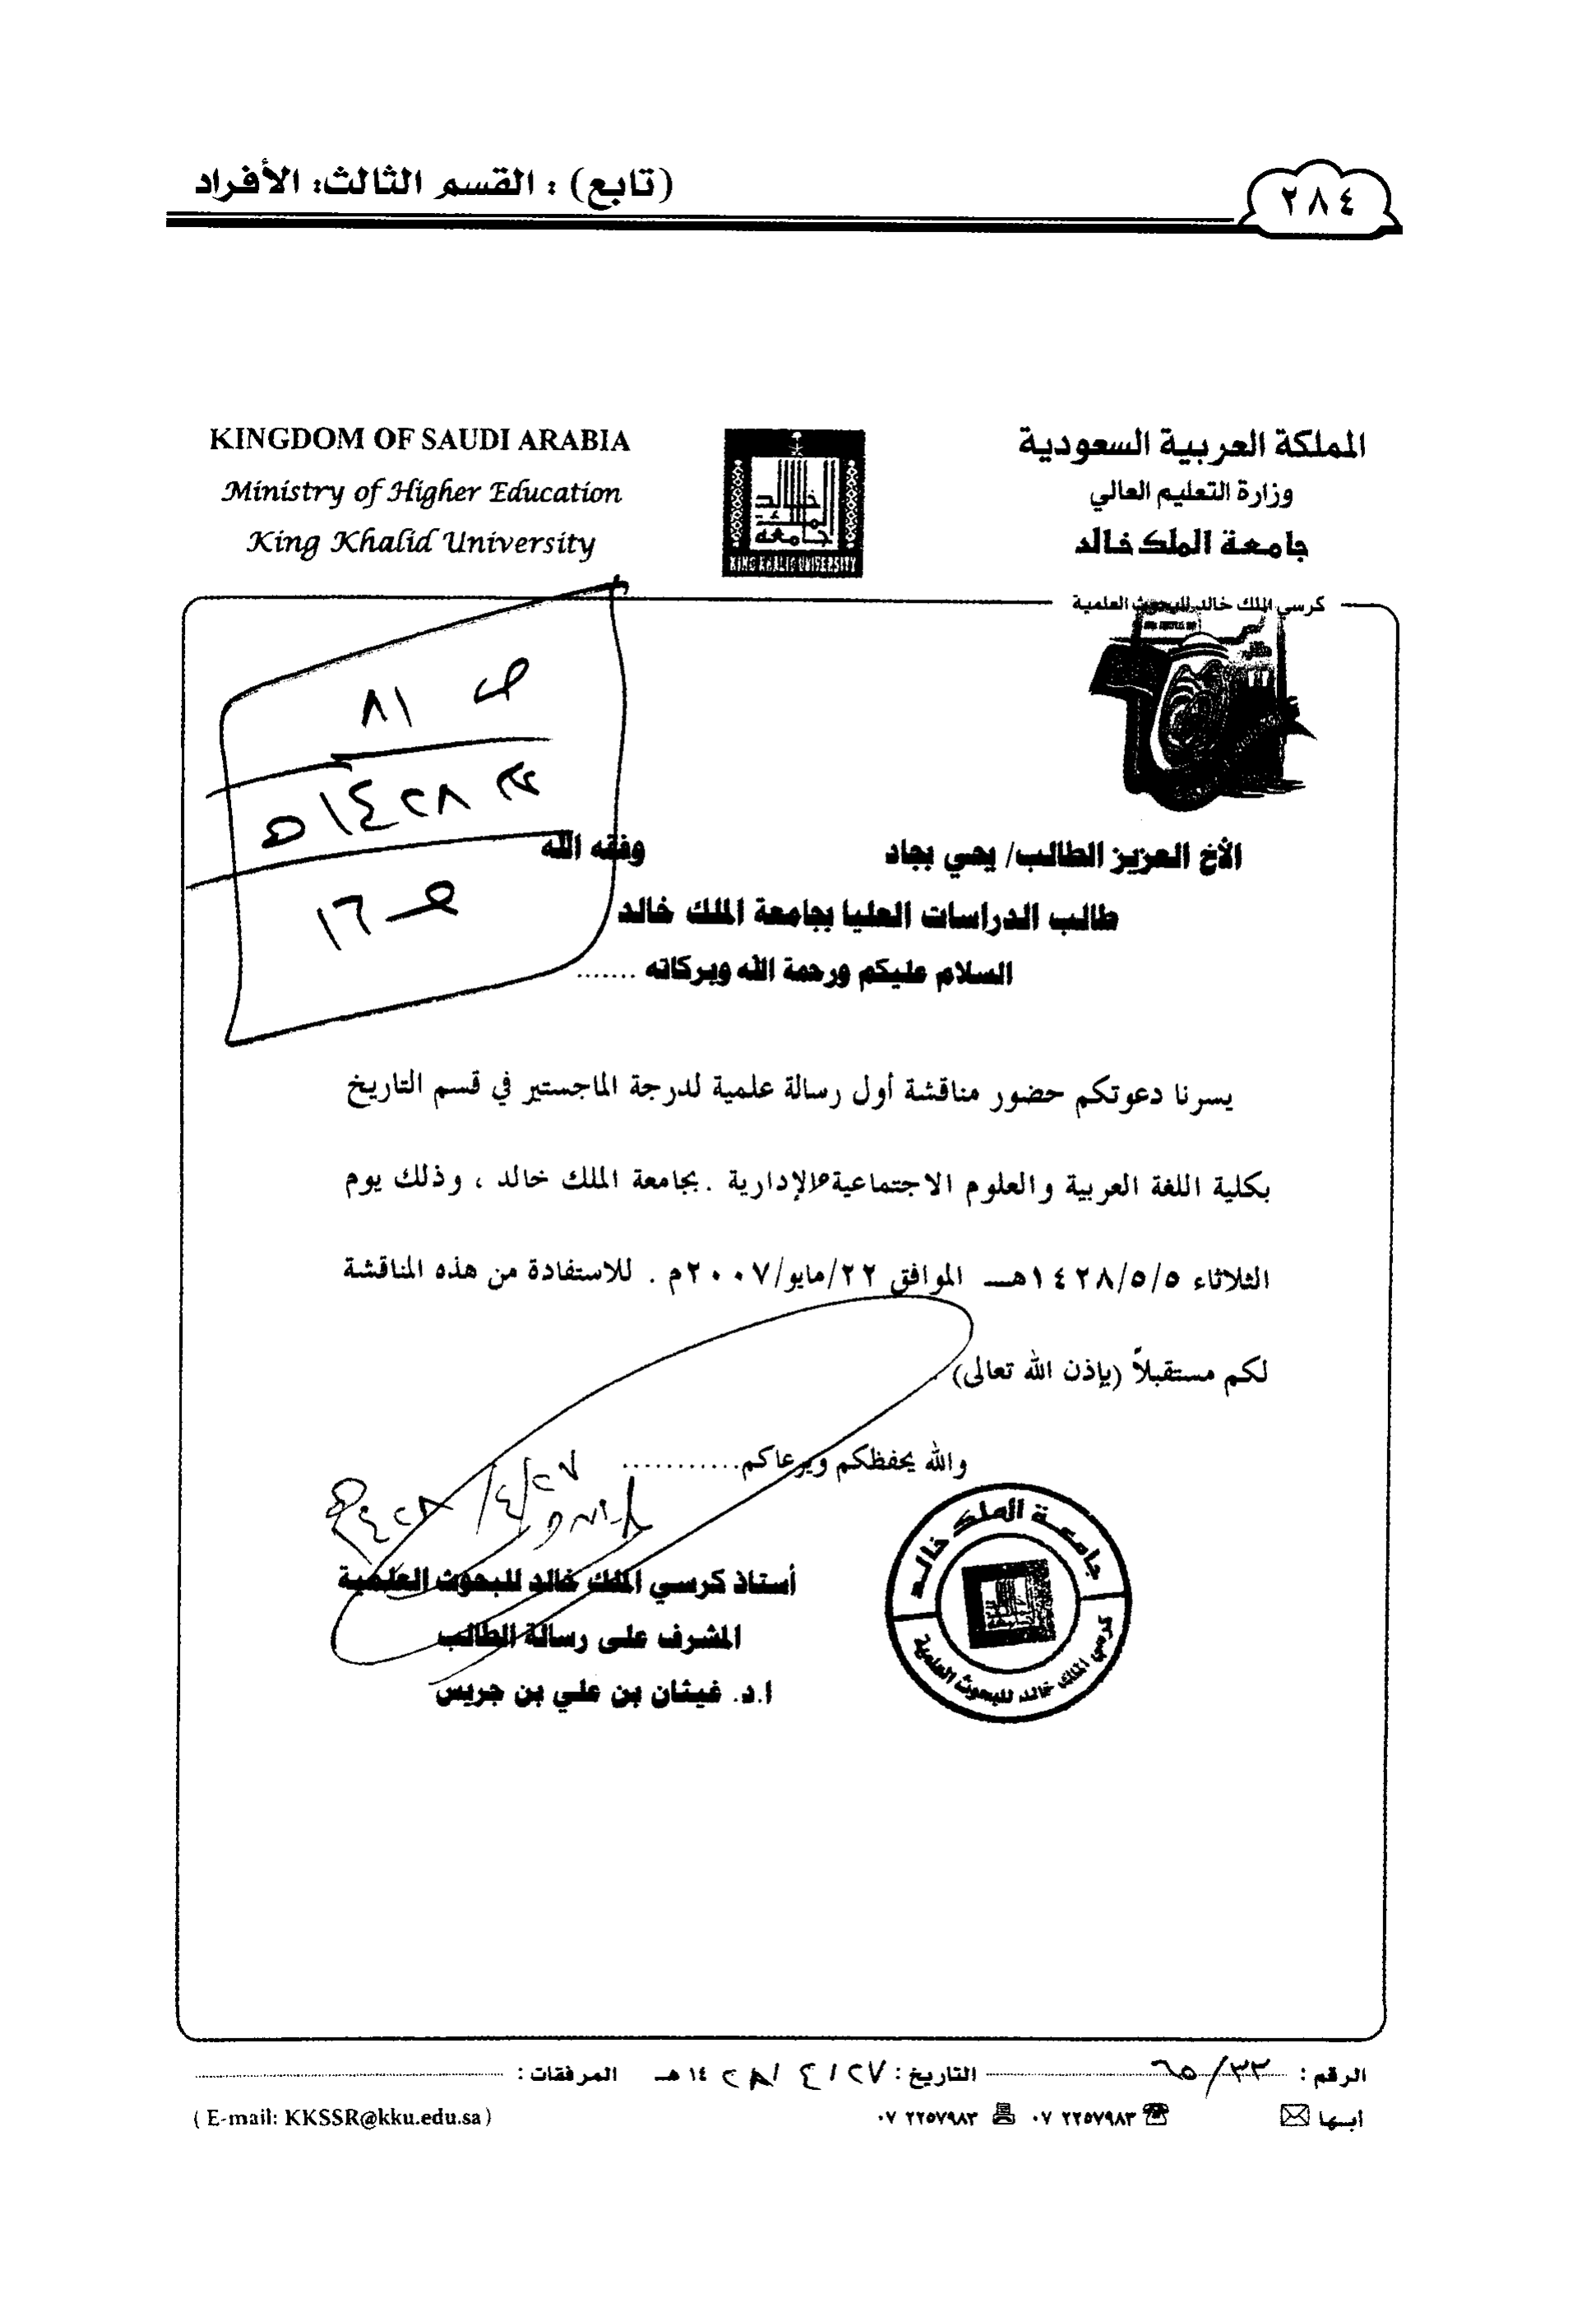 ٢٨٤
(تابع) : القسم الثالث: الأفراد
المملكة العربية السعودية
وزارة التعليم العالي
جامعة الملك خالد
KINGDOM OF SAUDI ARABIA
Ministry of Higher Education
King Khalid University
جامعة الملك خالد
KING KHALID UNIVERSITY
كرسي الملك خالد للبحوث العلمية
ص ٨١
١٤٢٨هـ
١٦
الأخ العزيز الطالب/ يحي بجاد وفقه الله
طالب الدراسات العليا بجامعة الملك خالد
السلام عليكم ورحمة الله وبركاته .......
يسرنا دعوتكم حضور مناقشة أول رسالة علمية لدرجة الماجستير في قسم التاريخ
بكلية اللغة العربية والعلوم الاجتماعية والإدارية . بجامعة الملك خالد ، وذلك يوم
الثلاثاء ١٤٢٨/٥/٥هـ الموافق ٢٢/مايو/٢٠٠٧م . للاستفادة من هذه المناقشة
لكم مستقبلاً (بإذن الله تعالى) .
والله يحفظكم ويرعاكم...........
٢٧/٤/١٤٢٨هـ
أستاذ كرسي الملك خالد للبحوث العلمية
المشرف على رسالة الطالب
ا.د. غيثان بن علي بن جريس
جامعة الملك خالد
كرسي الملك خالد للبحوث العلمية
الرقم : ٦٥/٣٣ التاريخ : ٢٧ / ٤ / ١٤٢٨ هـ المرفقات :
أبها ٠٧ ٢٢٥٧٩٨٣ ٠٧ ٢٢٥٧٩٨٣ ( E-mail: KKSSR@kku.edu.sa )